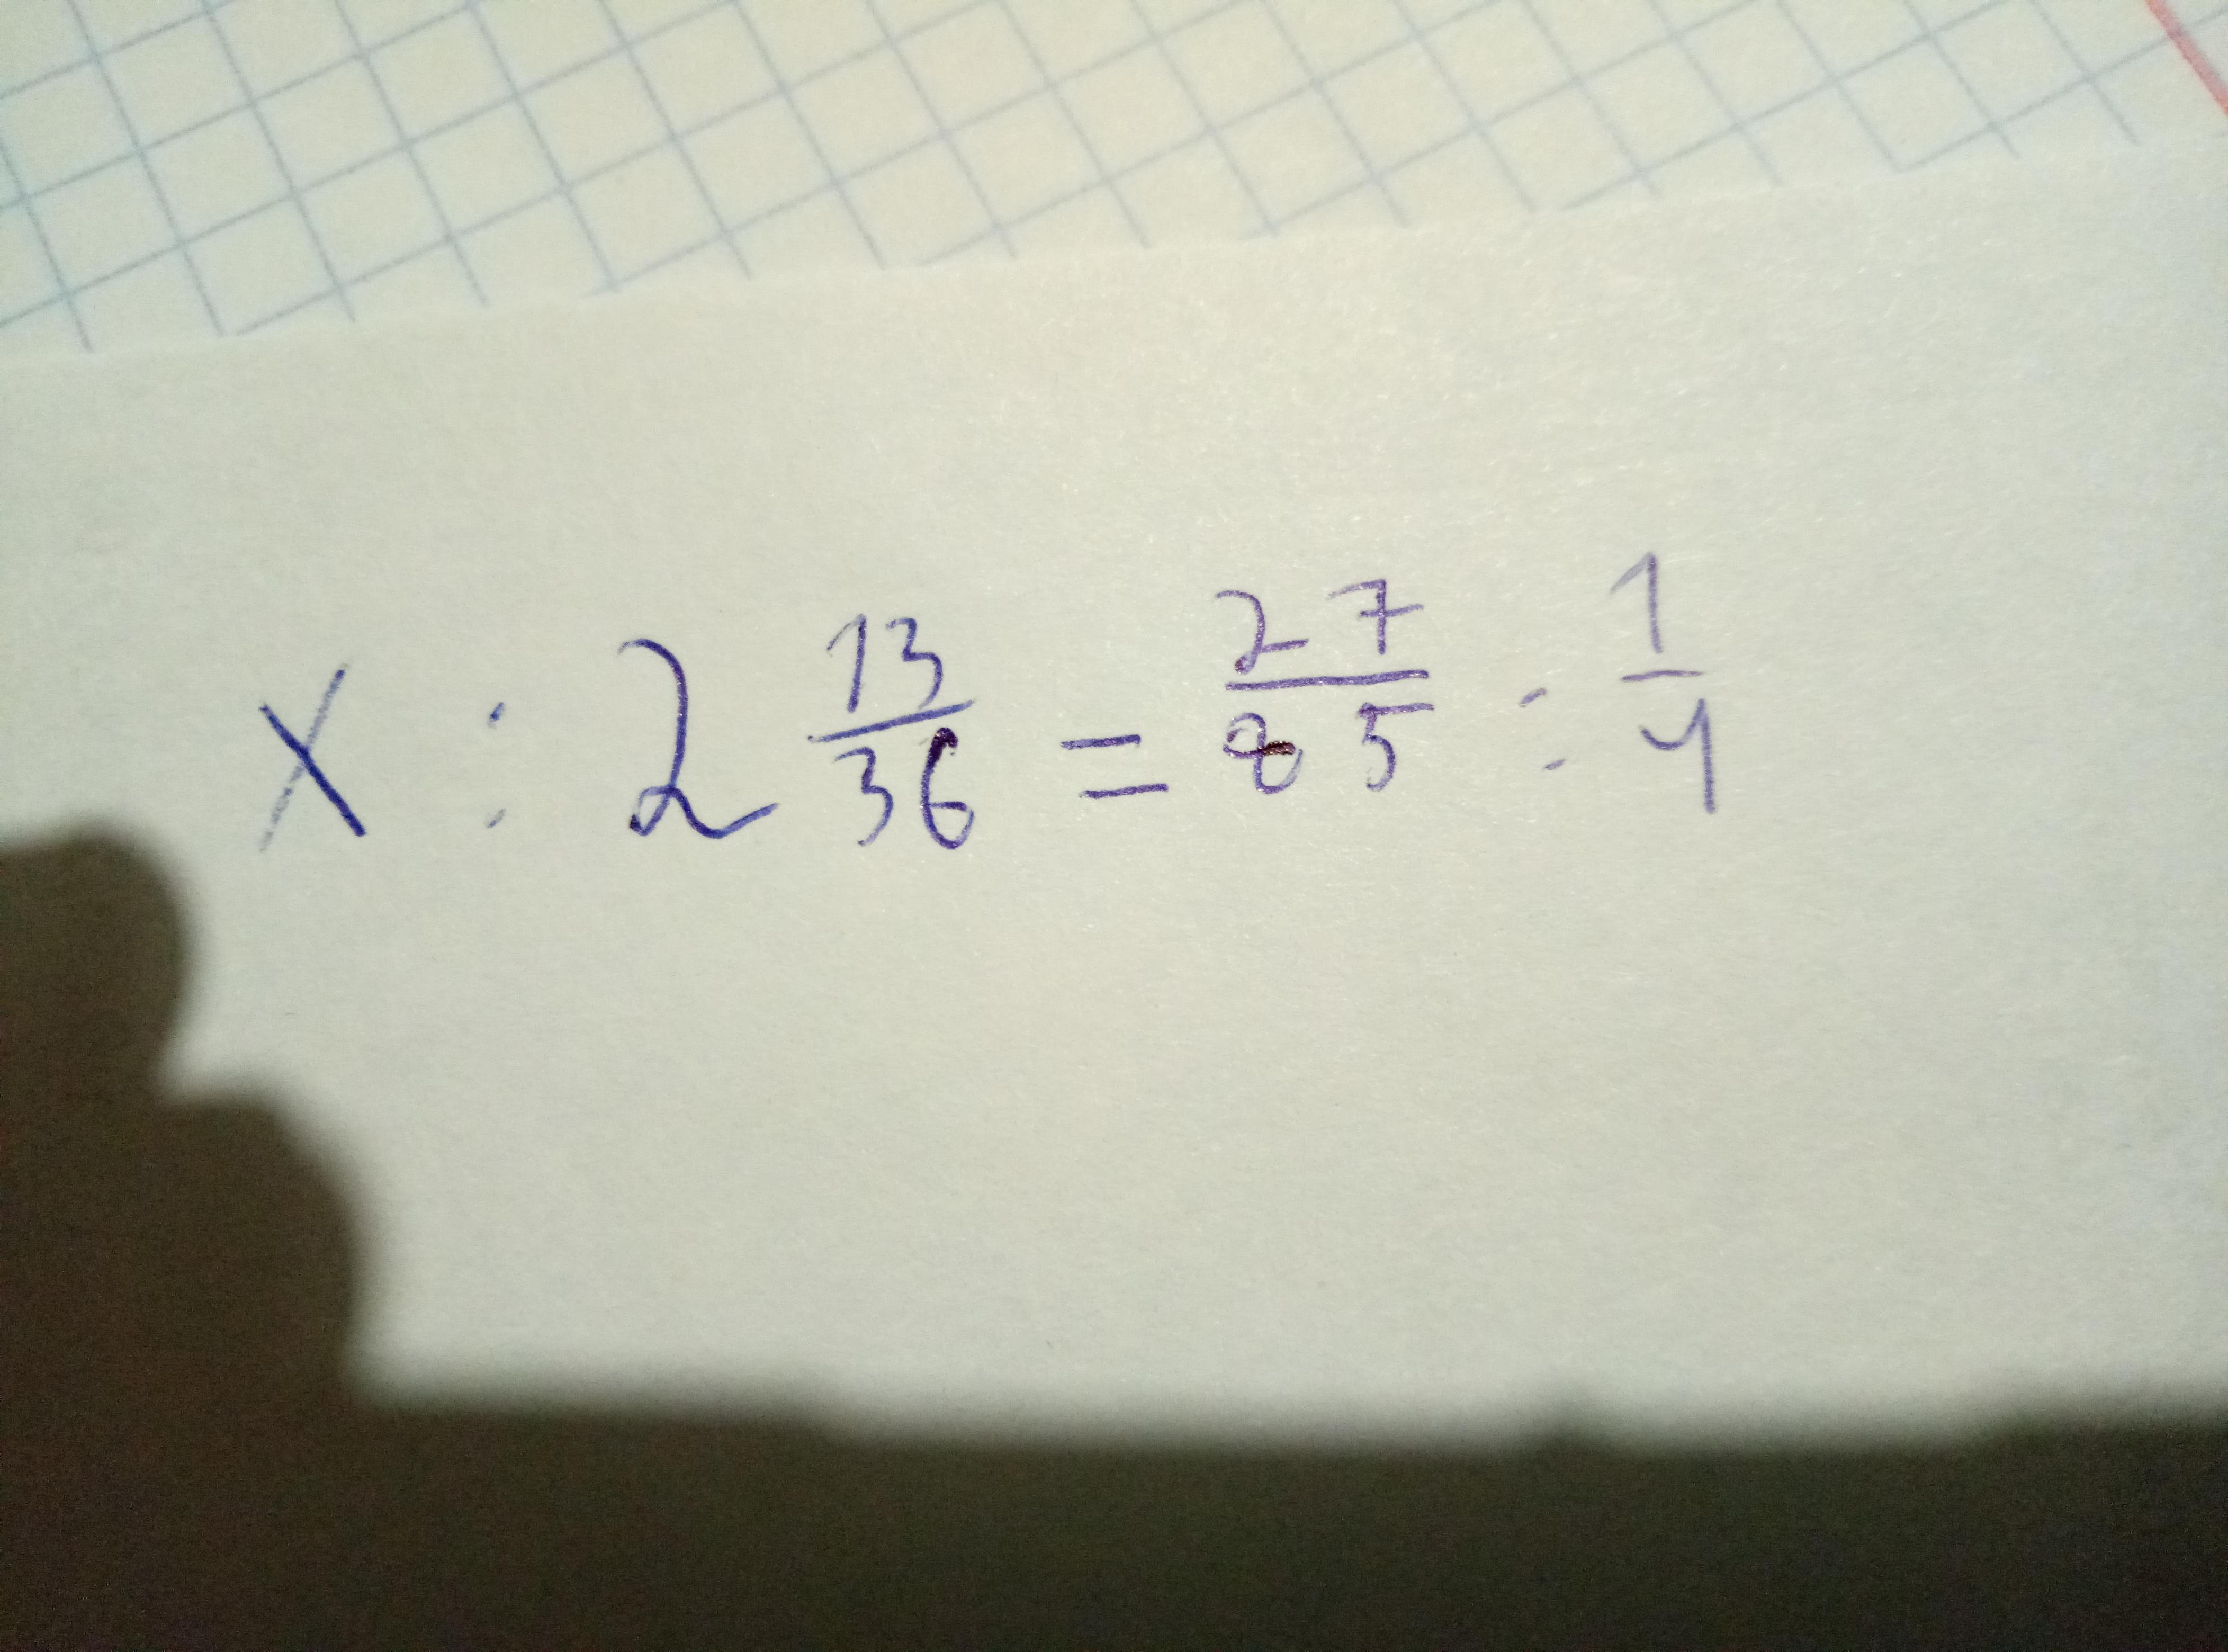 x : 2 13/36 = 27/85 : 1/4